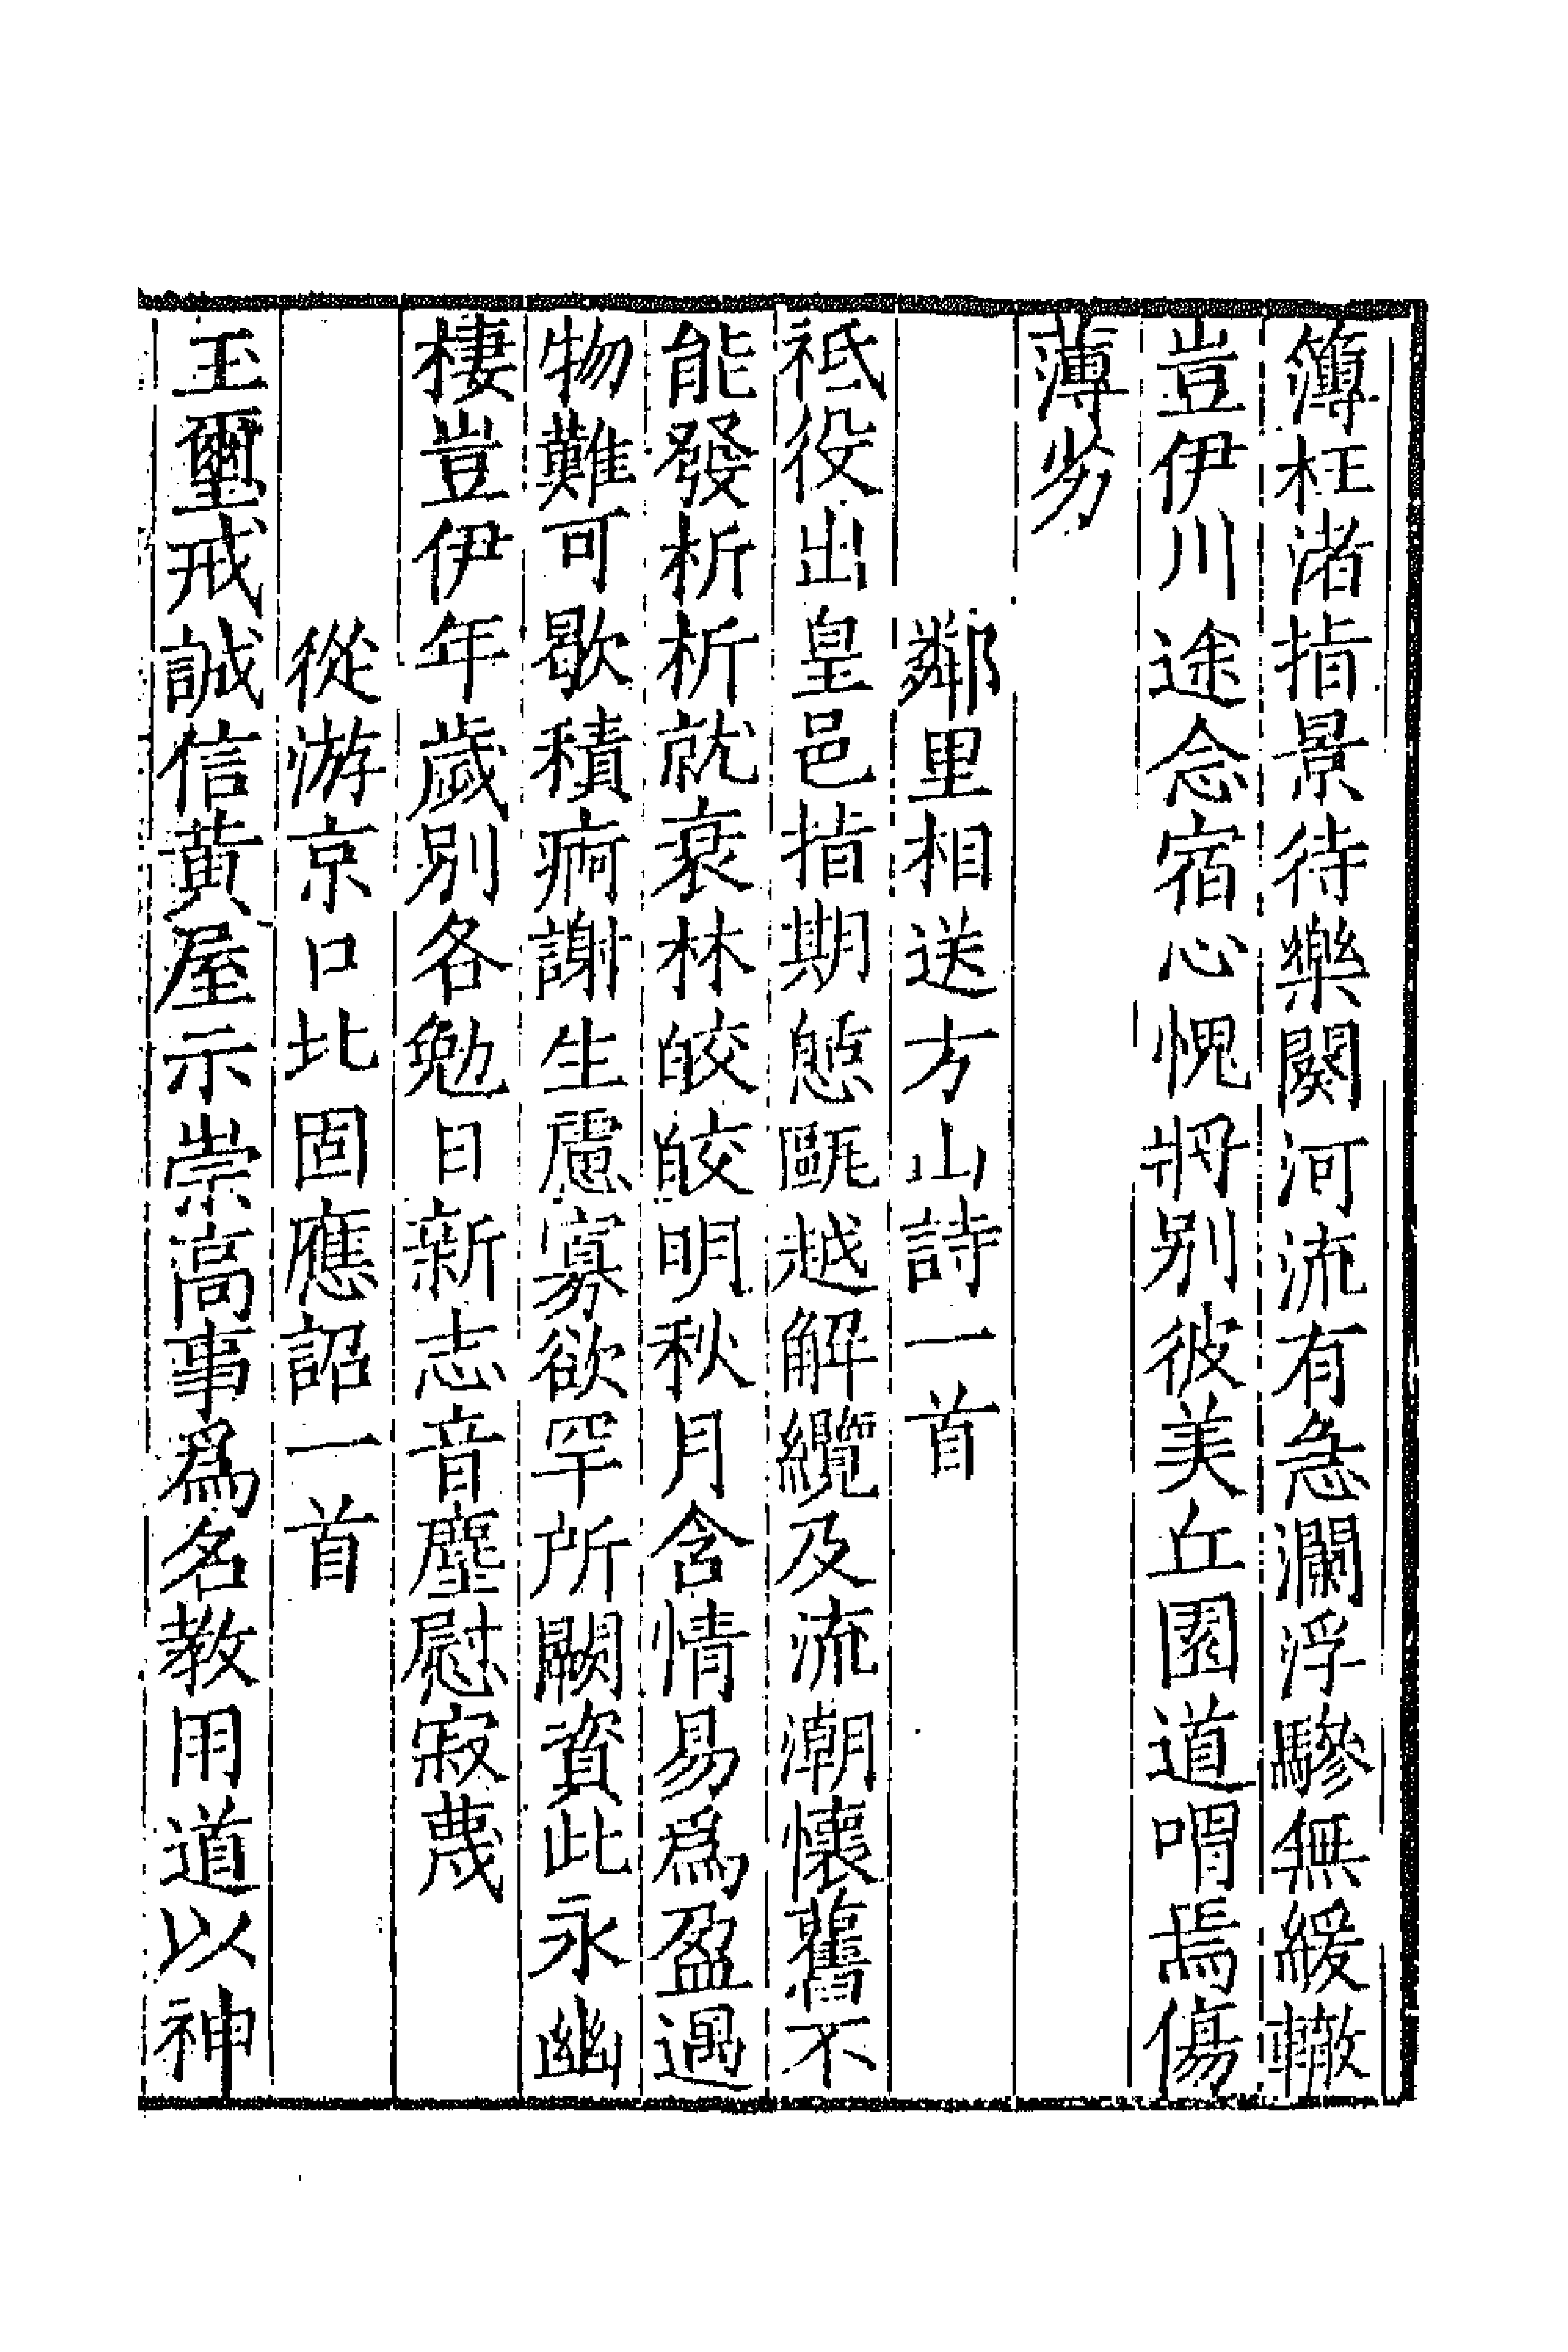 簿枉渚指景待樂闋河流有急瀾浮驂無緩轍
豈伊川途念宿心愧將別彼美丘園道喟焉傷
薄劣
鄰里相送方山詩一首
祗役出皇邑指期憩甌越解纜及流潮懷舊不
能發析析就衰林皎皎明秋月含情易爲盈遇
物難可歇積痾謝生慮寡欲罕所闕資此永幽
棲豈伊年歲別各勉日新志音塵慰寂蔑
從游京口北固應詔一首
玉璽戒誠信黃屋示崇高事爲名教用道以神